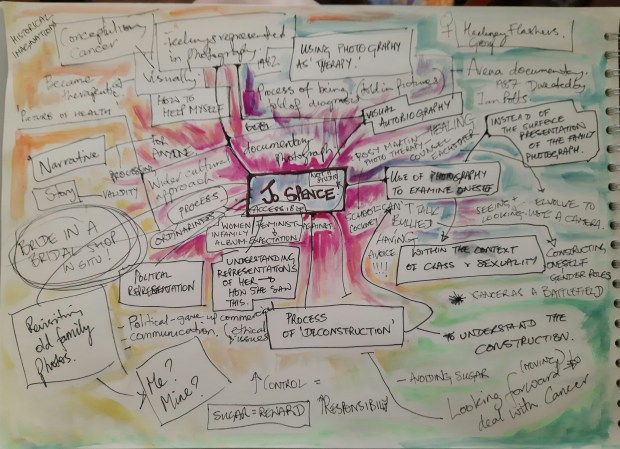 HISTORICAL
IMAGINATIONS
Conceptualising
Cancer
Visually
Feelings represented
in Photography.
1982
USING PHOTOGRAPHY
AS THERAPY.
Hackney Flashers.
Group
Became
therapeutic
PICTURE OF HEALTH
HOW TO
HELP MYSELF
Process of being
told of diagnosis
(told in pictures)
Arena documentary.
1987 Directed by
Ian Potts
VISUAL
AUTOBIOGRAPHY
documentary
photograph
HEALING
ROSY MARTIN
PHOTO THERAPY
COUNSEL
FACILITATOR
INSTEAD OF
THE SURFACE
PRESENTATION
OF THE FAMILY
PHOTOGRAPH.
FOR
ANYONE
Narrative
Story
PROCESSION
VALIDITY
Wider cultural
approach
PROCESS
ORDINARINESS
JO SPENCE
ACCESSIBLE
USE OF PHOTOGRAPHY
TO EXAMINE ONESELF
SEEING +
LOOKING LIKE A CAMERA.
EVOLVE TO
BRIDE IN A
BRIDAL SHOP
IN SITU!
WOMEN
IN FAMILY
ALBUM
FEMINIST
EXPECTATION
AGAINST
CAN'T TALK
BULLIED
HAVING
A VOICE
!!!!
WITHIN THE CONTEXT
OF CLASS + SEXUALITY
CONSTRUCTING
ONESELF
GENDER ROLES
POLITICAL
REPRESENTATION
UNDERSTANDING
REPRESENTATIONS
OF HER +
HOW SHE SAW
THIS.
CANCER AS A BATTLEFIELD
Rewriting
old family
photos.
- Political - gave up commercial
communication.
(ethical
issues)
PROCESS
OF 'DECONSTRUCTION'
TO UNDERSTAND THE
CONSTRUCTION.
Me?
Mine?
↑ CONTROL =
↑ RESPONSIBILITY
SUGAR = REWARD
- AVOIDING SUGAR
(MOVING)
Looking forward to
deal with Cancer